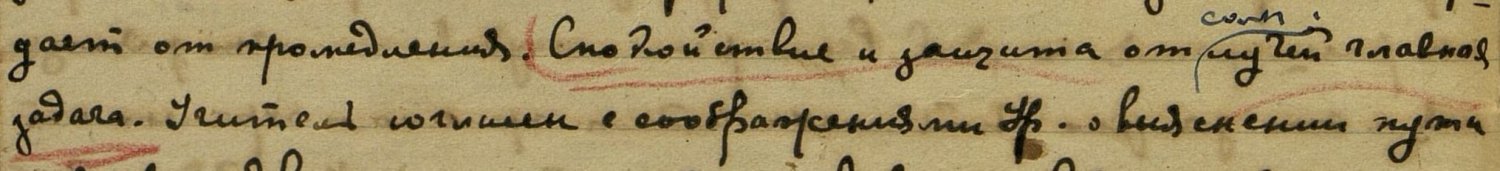 дает от промедления. Спокойствие и защита от солн. лучей главная
задача. Учитель согласен с соображениями Яр. о выяснении пути